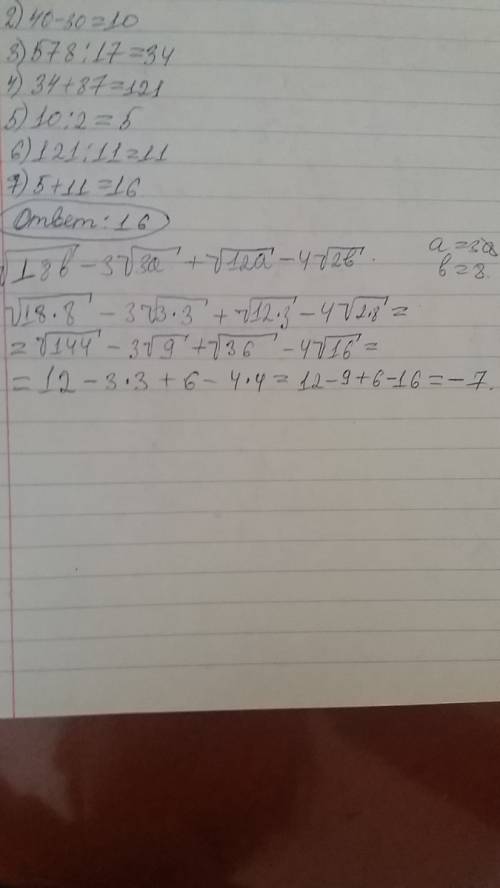 2) 40-30=10
3) 578:17=34
4) 34+87=121
5) 10:2=5
6) 121:11=11
7) 5+11=16
Ответ: 16
√18b - 3√3a + √12a - 4√2b.
a=3
b=8.
√18·8 - 3√3·3 + √12·3 - 4√2·8 =
= √144 - 3√9 + √36 - 4√16 =
= 12 - 3·3 + 6 - 4·4 = 12-9+6-16 = -7.